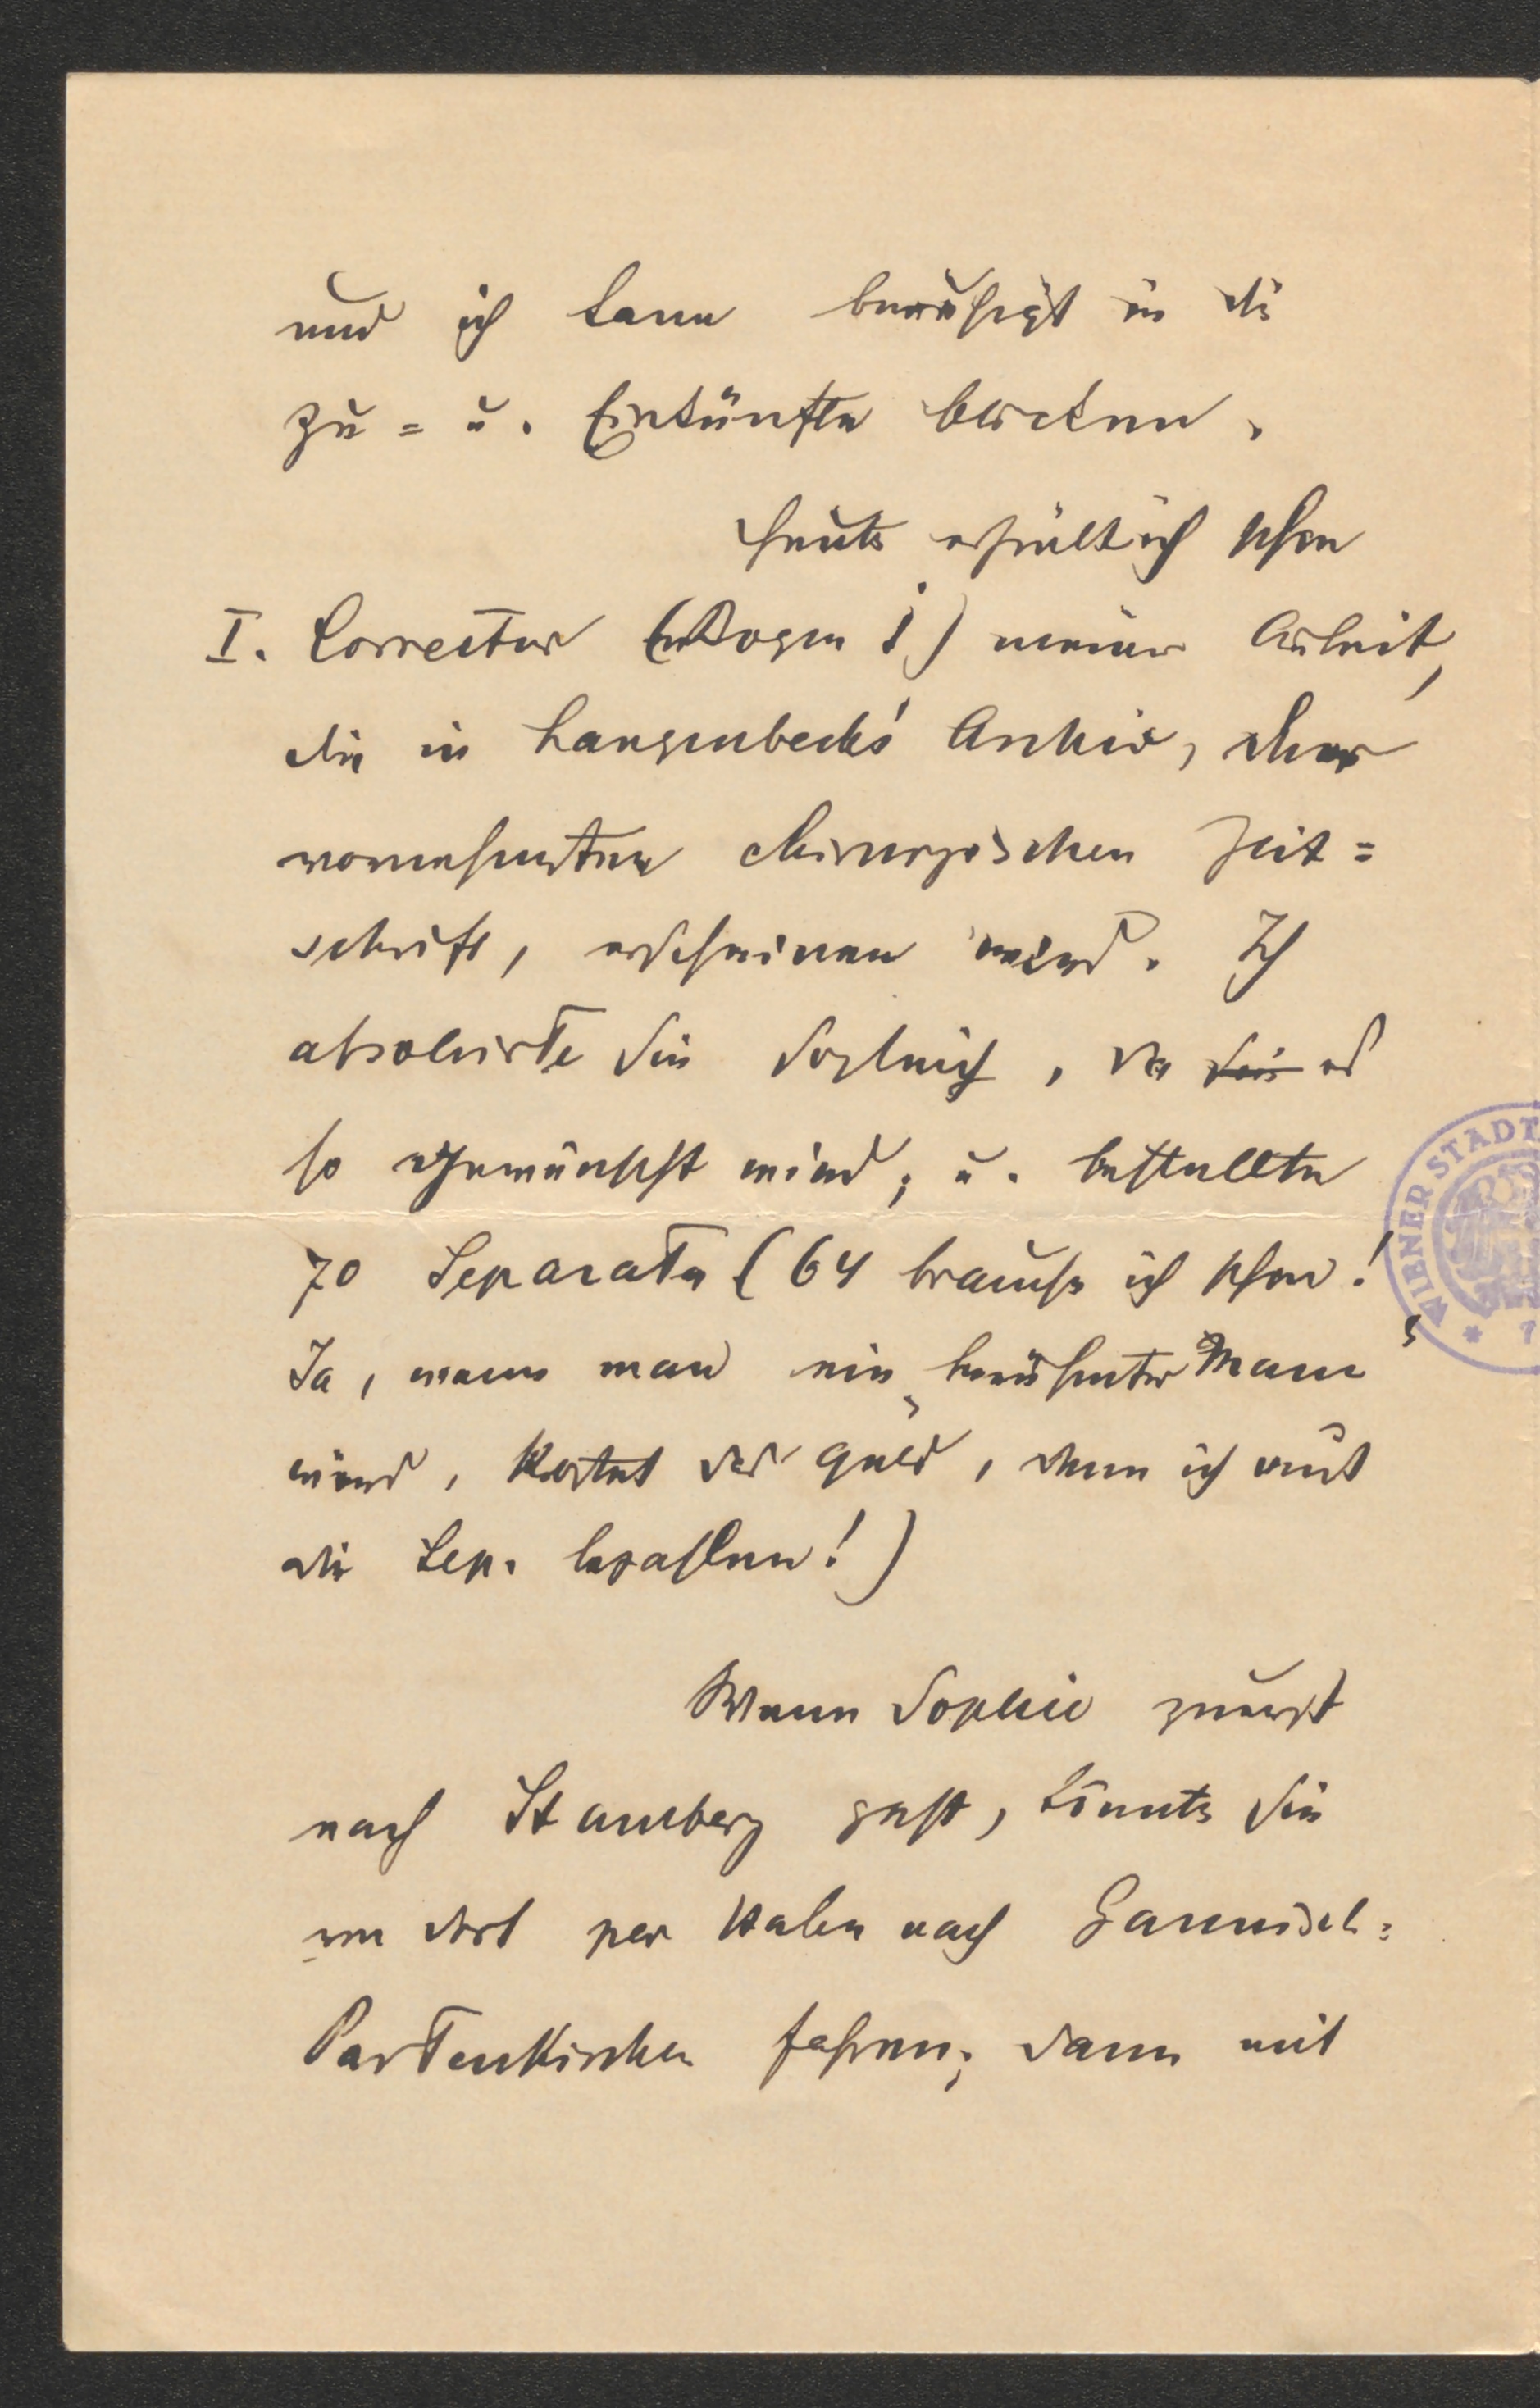 und ich kann beruhigt in die
Zu= u. Einkünfte blicken.
Heute erhielt ich schon
I. Correctur (Bogen 1) meiner Arbeit,
die in Langenbeck's Archiv, der
vornehmsten chirurgischen Zeit=
schrift, erscheinen wird. Ich
absolvirte sie sogleich, da sie es
so gewünscht wird, u. bestellte
70 Separata (64 brauche ich schon!
Ja, wenn man ein berühmter Mann
wird, kostet das Geld, denn ich muß
die Sep. bezahlen!)
Wenn Sophie zuerst
nach Starnberg geht, könnte sie
von dort per Bahn nach Garmisch=
Partenkirchen fahren; dann mit
WIENER STADT